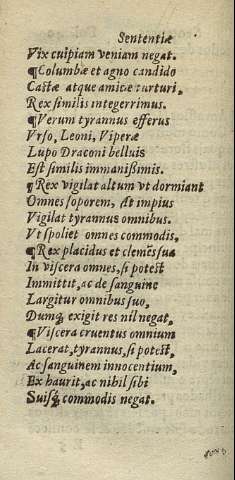 Sententiæ
Vix cuipiam veniam negat.
¶Columbæ et agno candido
Castæ atque amicæ turturi,
Rex similis integerrimus.
¶Verum tyrannus efferus
Vrso, Leoni, Viperæ
Lupo Draconi belluis
Est similis immanißimis.
¶Rex vigilat altum vt dormiant
Omnes soporem, At impius
Vigilat tyrannus omnibus.
Vt spoliet omnes commodis,
¶Rex placidus et clemẽs sua
In viscera omnes, si potest
Immittit, ac de sanguine
Largitur omnibus suo,
Dumꝗ exigit res nil negat,
¶Viscera cruentus omnium
Lacerat, tyrannus, si potest,
Ac sanguinem innocentium,
Ex haurit, ac nihil sibi
Suisꝗ commodis negat.